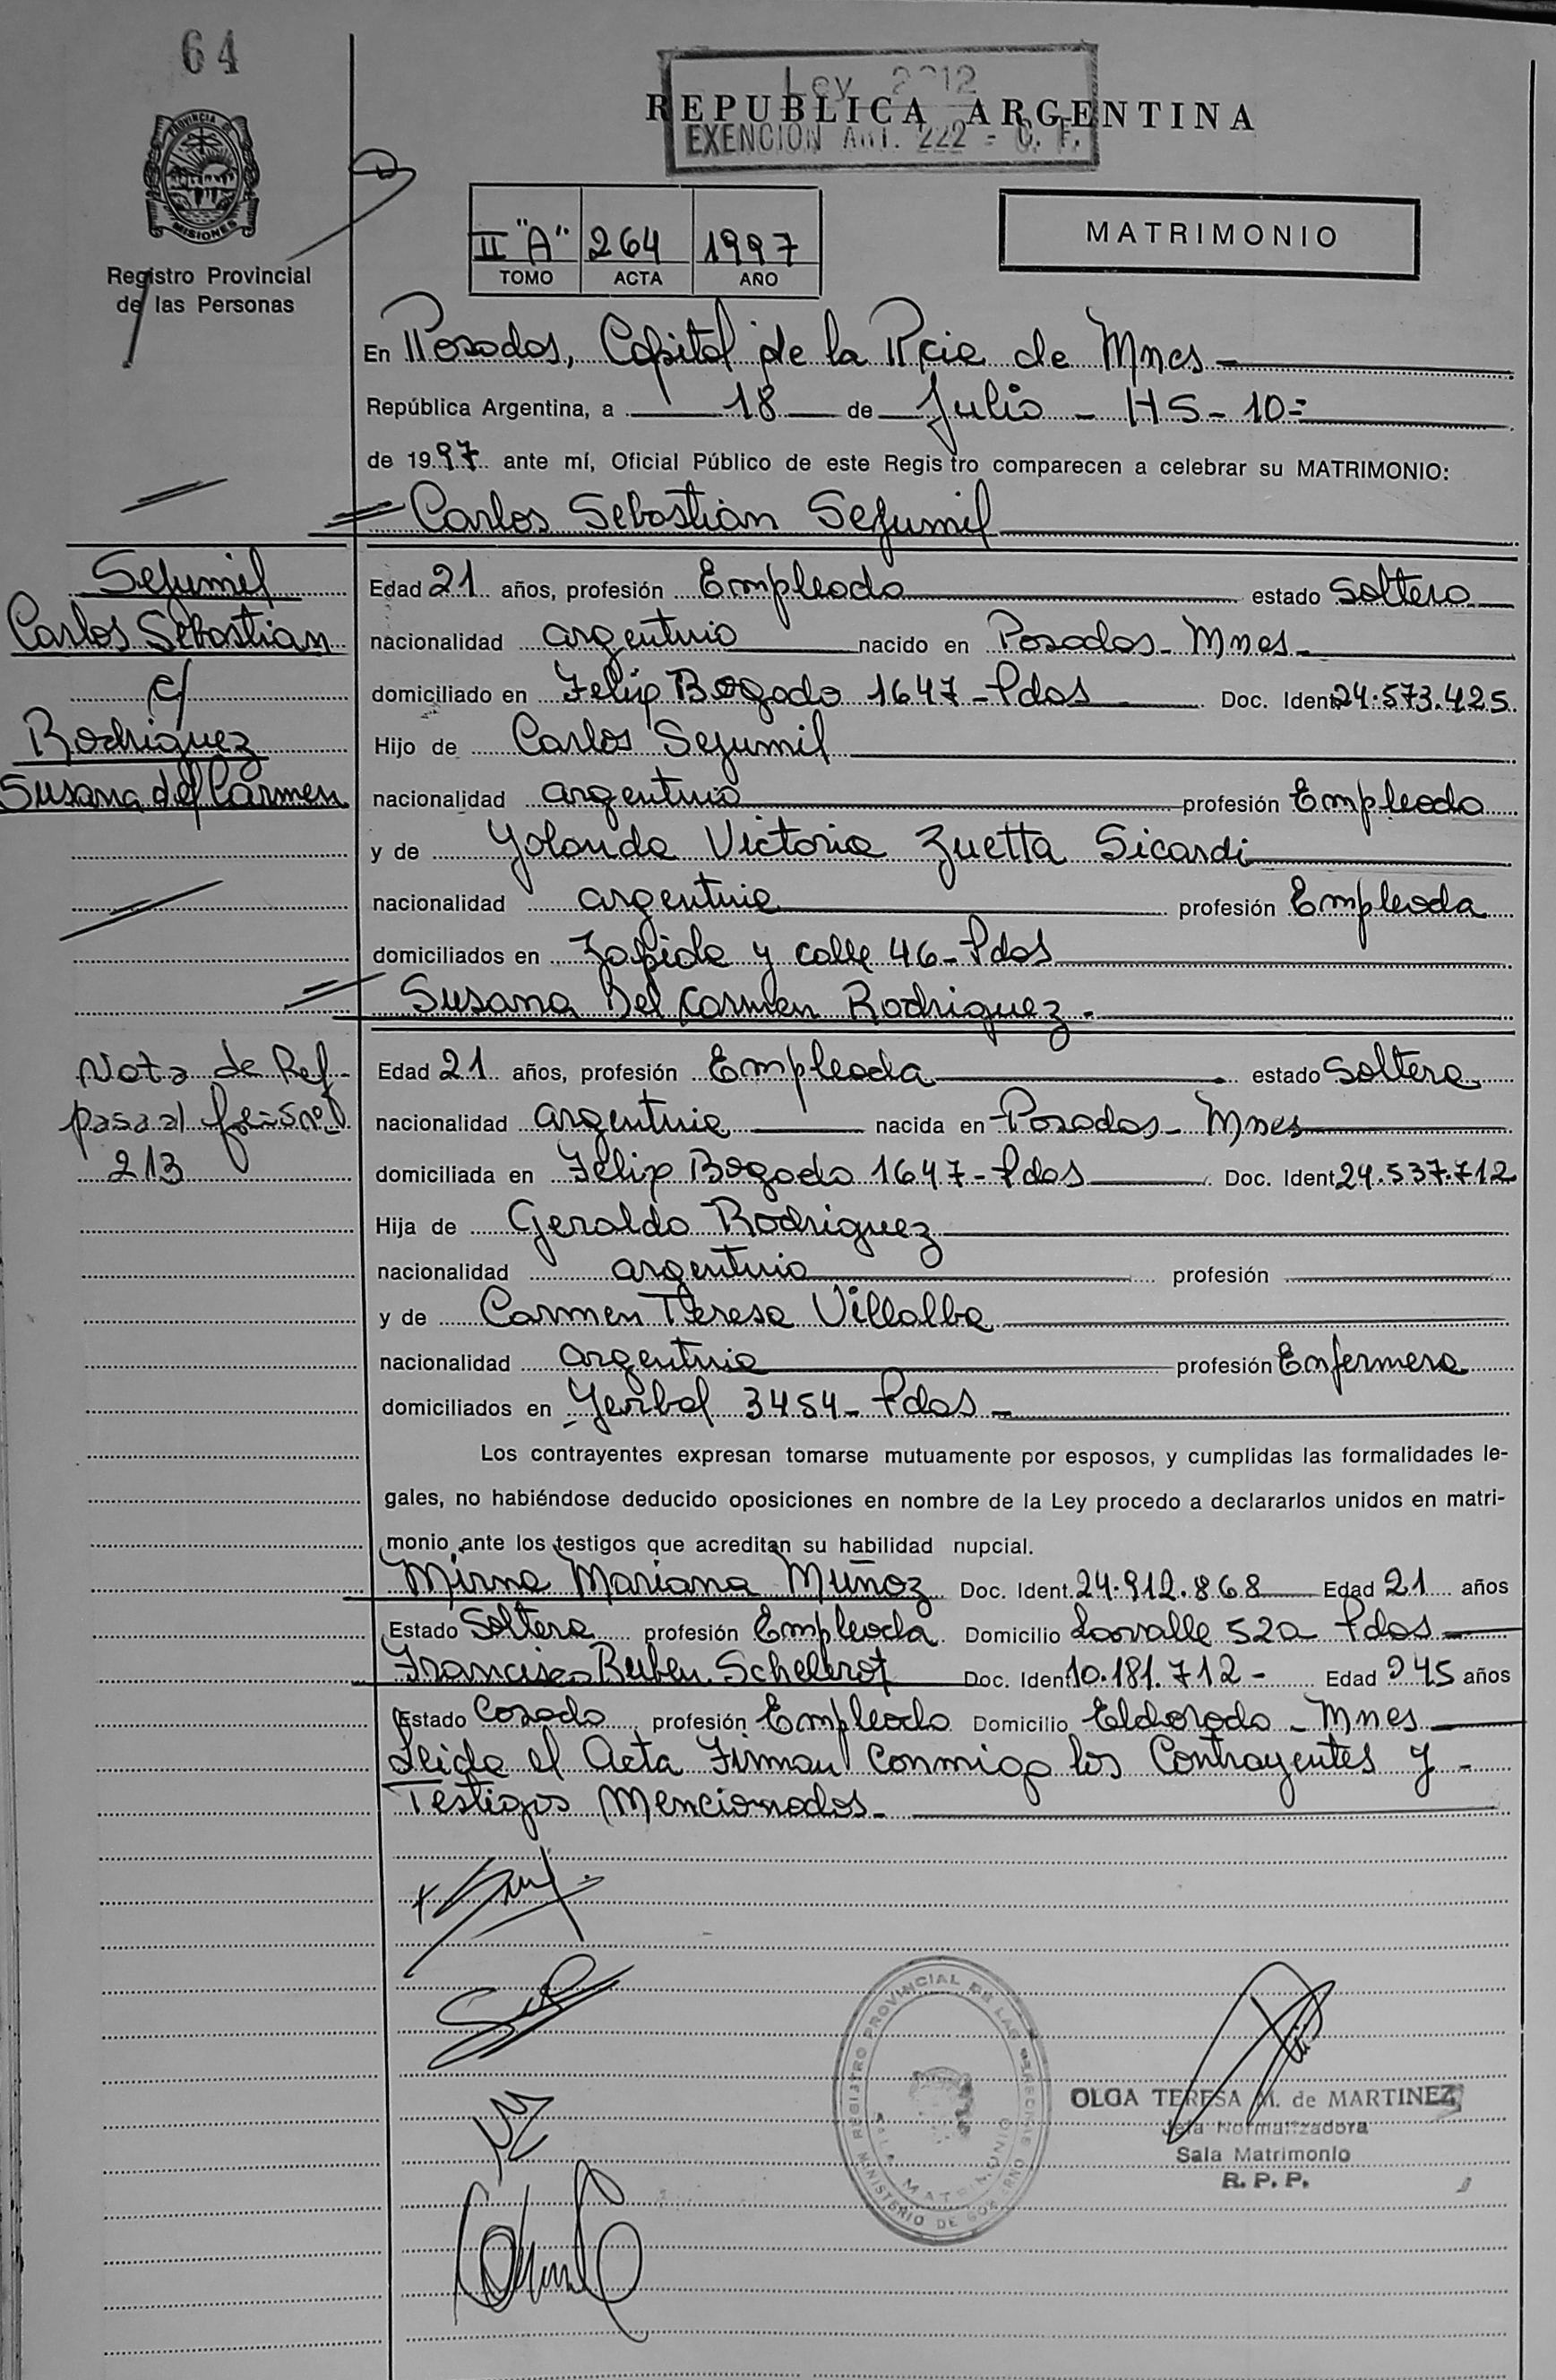 64
Ley 2912
REPUBLICA ARGENTINA
EXENCION Art. 222 - C. F.
PROVINCIA DE
MISIONES
Registro Provincial
de las Personas
II "A" 264 1997
TOMO ACTA AÑO
MATRIMONIO
En Posadas, Capital de la Pcia de Mnes
República Argentina, a 18 de Julio - HS - 10=
de 1997 ante mí, Oficial Público de este Registro comparecen a celebrar su MATRIMONIO:
Carlos Sebastián Sejumil
Sejumil
Carlos Sebastian
c/
Rodriguez
Susana del Carmen
Edad 21 años, profesión Empleado estado Soltero
nacionalidad argentino nacido en Posadas - Mnes -
domiciliado en Felip Bogado 1647 - Pdas Doc. Ident 24.573.425
Hijo de Carlos Sejumil
nacionalidad argentino profesión Empleado
y de Yolanda Victoria Zuetta Sicardi
nacionalidad argentina profesión Empleada
domiciliados en Zapiola y calle 46 - Pdas
Susana Del Carmen Rodriguez -
Nota de Ref -
pasa al
213
Edad 21 años, profesión Empleada estado Soltera
nacionalidad argentina nacida en Posadas - Mnes
domiciliada en Felip Bogado 1647 - Pdas Doc. Ident 24.537.712
Hija de Geraldo Rodriguez
nacionalidad argentino profesión
y de Carmen Teresa Villalba
nacionalidad argentina profesión Enfermera
domiciliados en Yerbal 3454 - Pdas -
Los contrayentes expresan tomarse mutuamente por esposos, y cumplidas las formalidades le-
gales, no habiéndose deducido oposiciones en nombre de la Ley procedo a declararlos unidos en matri-
monio ante los testigos que acreditan su habilidad nupcial.
Mirna Mariana Muñoz Doc. Ident. 24.912.868 Edad 21 años
Estado Soltera profesión Empleada Domicilio Lavalle 520 Pdas
Francisco Ruben Doc. Ident 10.181.712 - Edad 45 años
Estado Casado profesión Empleado Domicilio Eldorado - Mnes
Leida el Acta Firman Conmigo los Contrayentes y -
Testigos Mencionados -
REGISTRO PROVINCIAL DE LAS PERSONAS
SALA MATRIMONIO
MINISTERIO DE GOBIERNO
OLGA TERESA M. de MARTINEZ
Jefa Normalizadora
Sala Matrimonio
R. P. P.